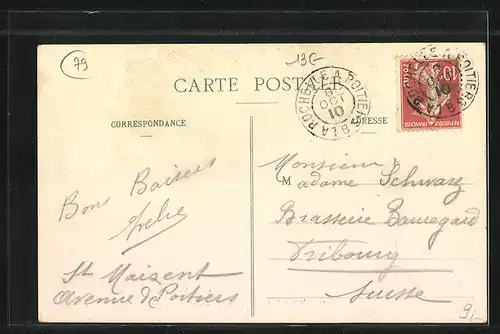 79
13G
CARTE POSTALE
LA ROCHELLE A POITIERS
8
OCT
10
CORRESPONDANCE
ADRESSE
REPUBLIQUE FRANÇAISE
10
Monsieur
Madame Schwarz
Brasserie Beauregard
Fribourg
Suisse
Bons Baisers
St Maixent
Avenue de Poitiers
9,-